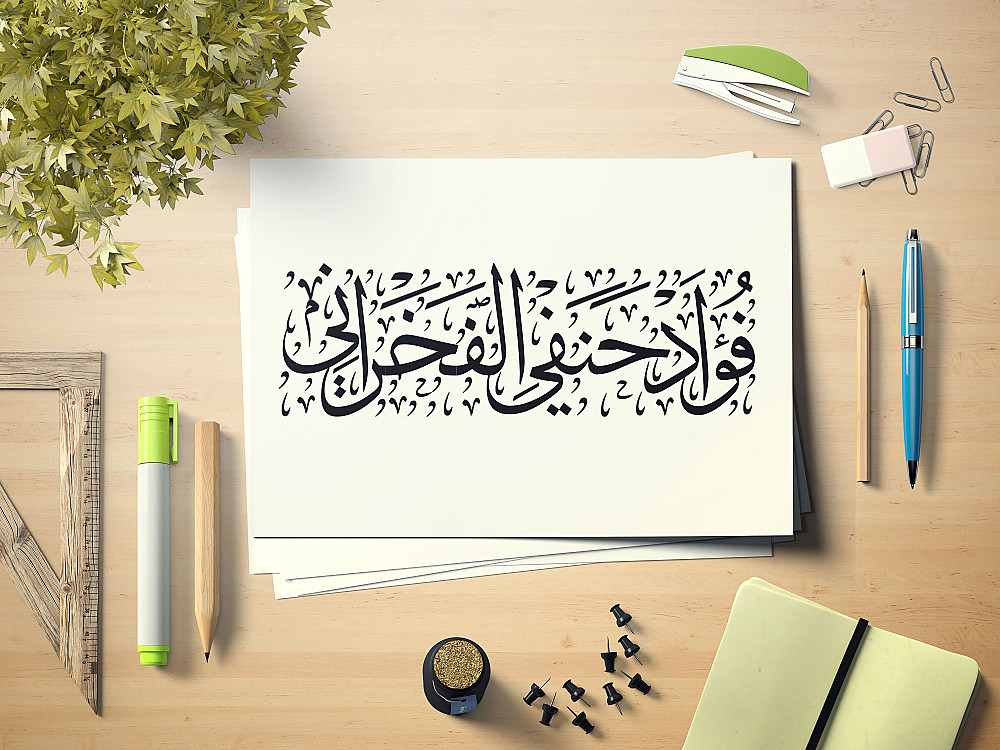 فؤاد حنفي الفخراني